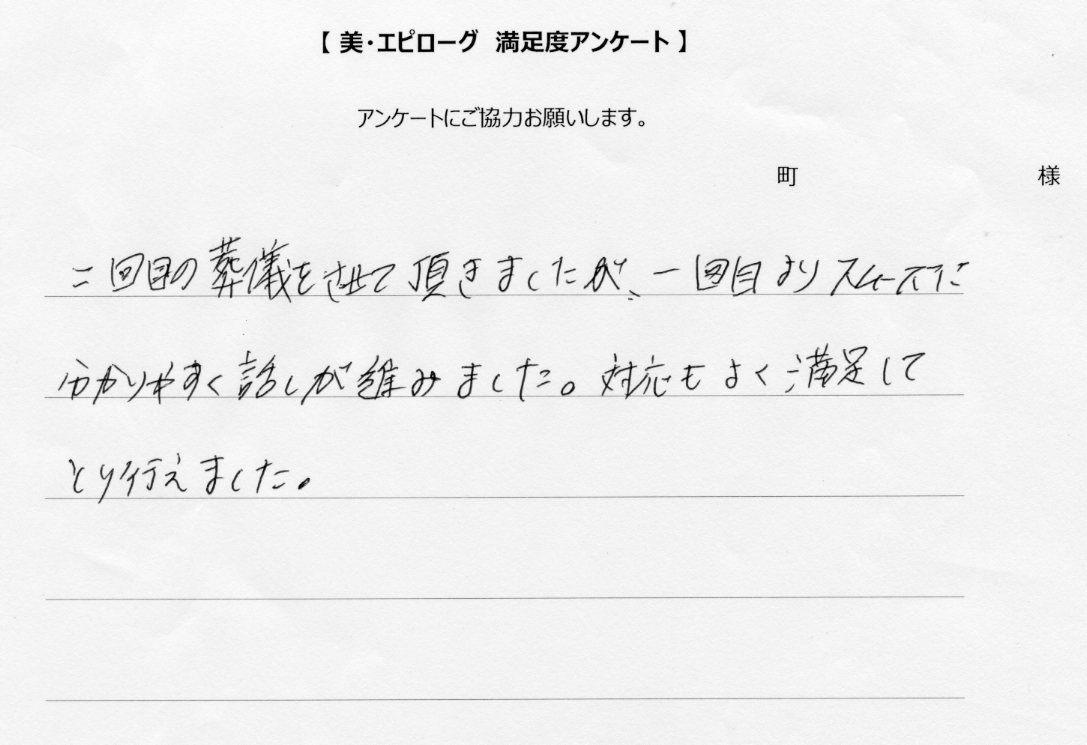 【 美・エピローグ 満足度アンケート 】
アンケートにご協力お願いします。
町 様
二回目の葬儀をさせて頂きましたが、一回目よりスムーズに
分かりやすく話しが進みました。対応もよく満足して
とり行えました。